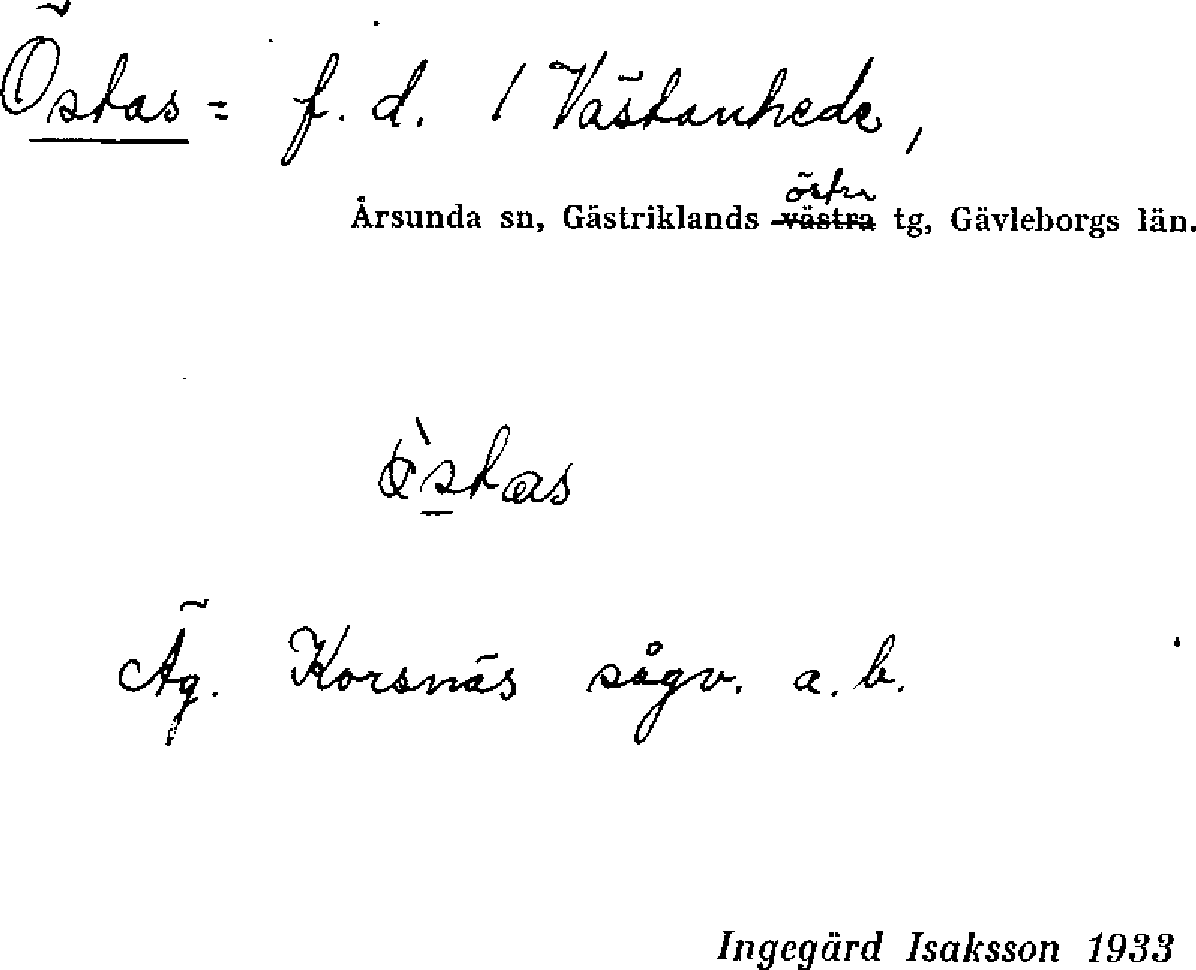 Östas = f. d. 1 Västanhede,
östra
Årsunda sn, Gästriklands västra tg, Gävleborgs län.
Äg. Korsnäs sågv. a. b.
Ingegärd Isaksson 1933